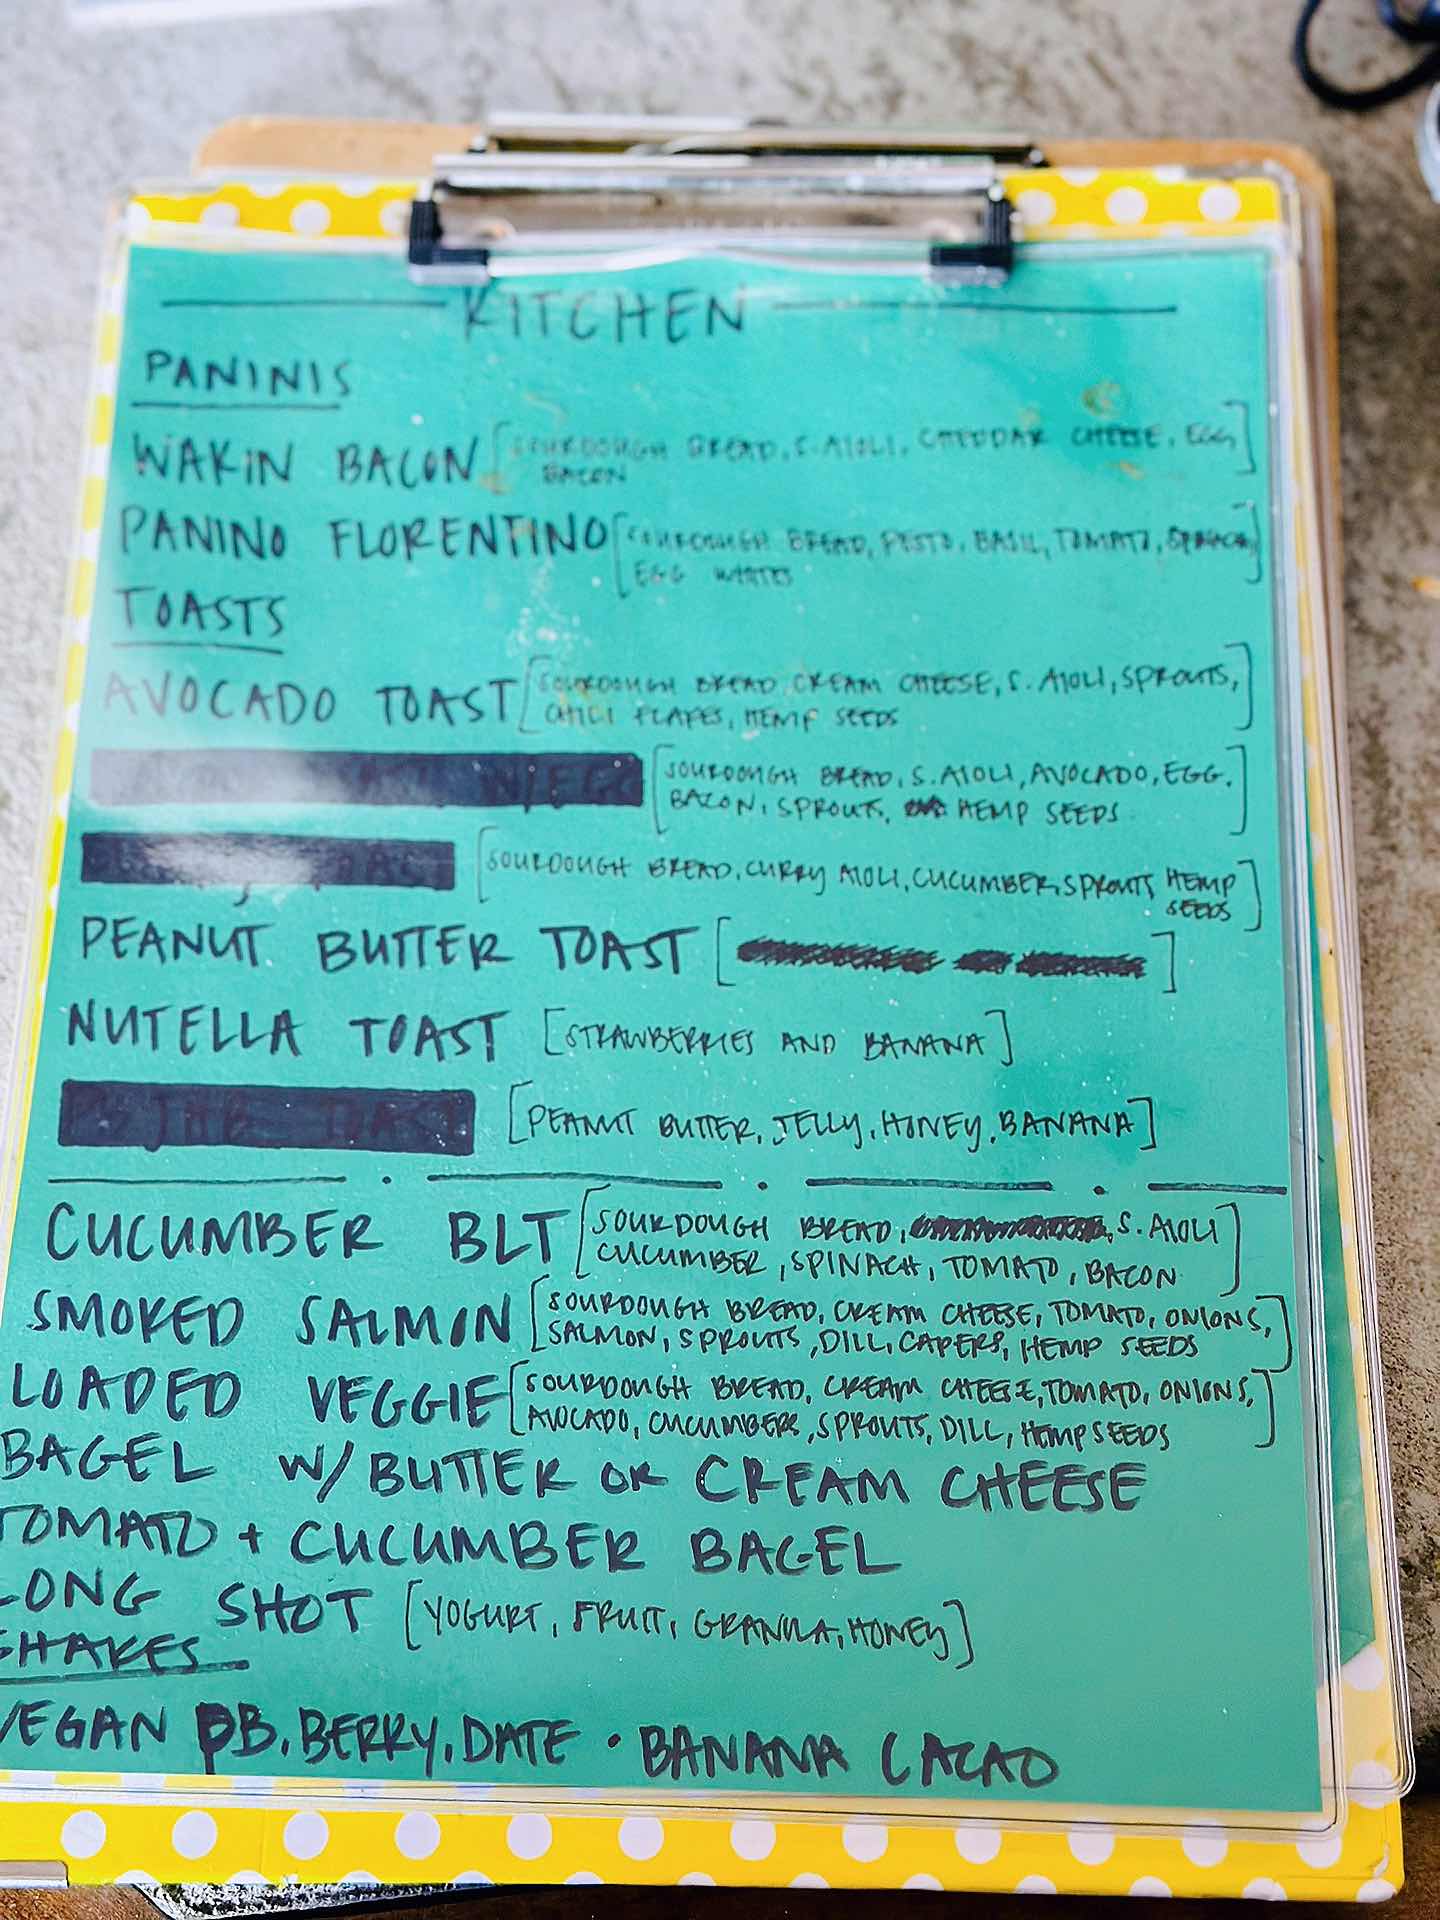 KITCHEN
PANINIS
WAKIN BACON [SOURDOUGH BREAD, S. AIOLI, CHEDDAR CHEESE, EGG,
BACON]
PANINO FLORENTINO [SOURDOUGH BREAD, PESTO, BASIL, TOMATO, SPINACH,
EGG WHITES]
TOASTS
AVOCADO TOAST [SOURDOUGH BREAD, CREAM CHEESE, S. AIOLI, SPROUTS,
CHILI FLAKES, HEMP SEEDS]
[SOURDOUGH BREAD, S. AIOLI, AVOCADO, EGG,
BACON, SPROUTS, HEMP SEEDS]
[SOURDOUGH BREAD, CURRY AIOLI, CUCUMBER, SPROUTS HEMP
SEEDS]
PEANUT BUTTER TOAST [ ]
NUTELLA TOAST [STRAWBERRIES AND BANANA]
[PEANUT BUTTER, JELLY, HONEY, BANANA]
CUCUMBER BLT [SOURDOUGH BREAD, S. AIOLI
CUCUMBER, SPINACH, TOMATO, BACON]
SMOKED SALMON [SOURDOUGH BREAD, CREAM CHEESE, TOMATO, ONIONS,
SALMON, SPROUTS, DILL, CAPERS, HEMP SEEDS]
LOADED VEGGIE [SOURDOUGH BREAD, CREAM CHEESE, TOMATO, ONIONS,
AVOCADO, CUCUMBERS, SPROUTS, DILL, HEMP SEEDS]
BAGEL W/ BUTTER OR CREAM CHEESE
TOMATO + CUCUMBER BAGEL
LONG SHOT [YOGURT, FRUIT, GRANOLA, HONEY]
SHAKES
VEGAN PB, BERRY, DATE • BANANA CACAO